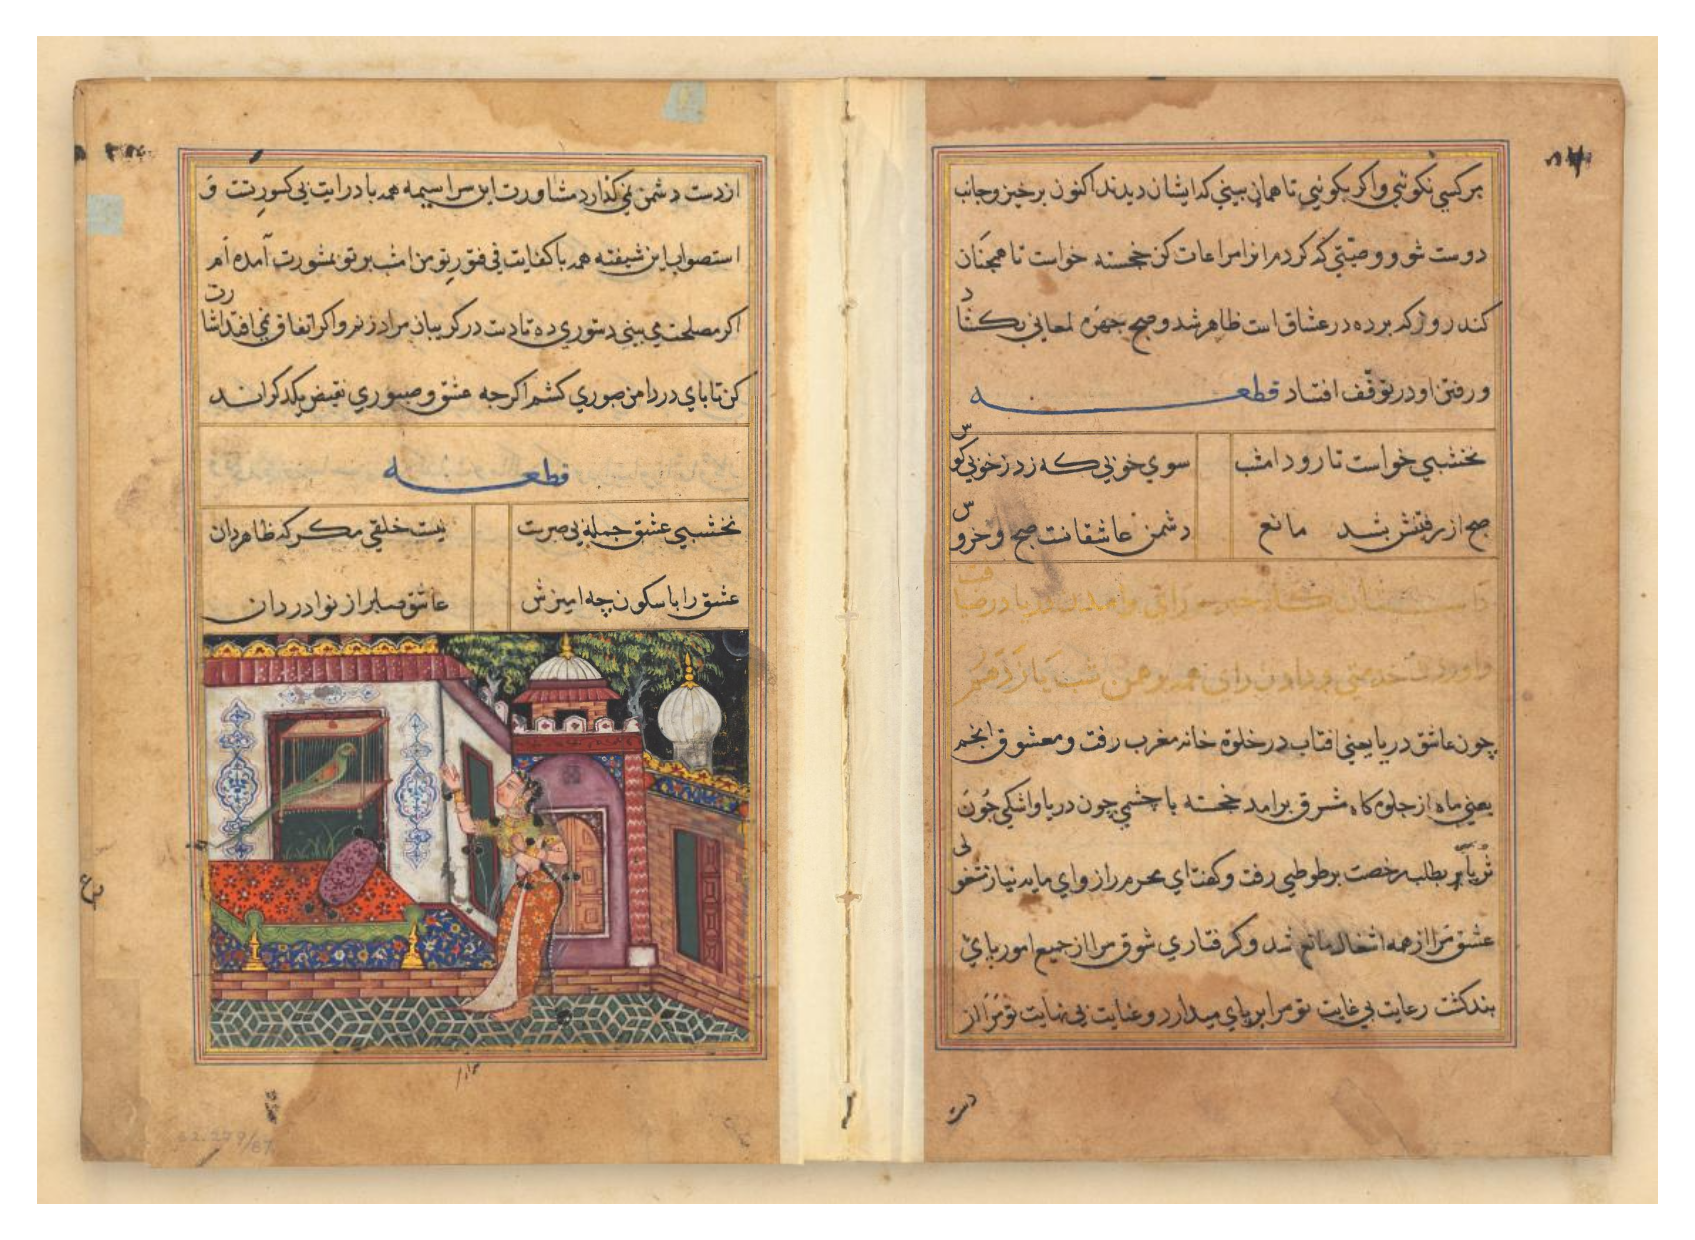 بر کسی نکوئی و اکر بکوئی تا همان بینی که ایشان دیدند اکنون برخیز و جانب
دوست شو و وصیتی که کردم انرا مراعات کن خجسته خواست تا همچنان
کند روز که پرده در عشاق است ظاهر شد و صبح چهره لمعانی بکشاد
و رفتن او در توقف افتاد قطعه
نخشبی خواست تا رود امشب سوی خوبی که زد ز خوبی کوس
صبح از رفتنش بشد مانع دشمن عاشقانست صبح و خروس
چون عاشق دریا یعنی افتاب در خلوة خانه مغرب رفت و معشوق انجم
یعنی ماه از جلوه کاه شرق برامد خجسته با چشمی چون دریا و اشکی چون
ثریا بطلب رخصت بر طوطی رفت و کفت ای محرم راز و ای مایه نیاز شغولی
عشق مرا از همه اشغال مانع شد و کرفتاری شوق مرا از جمیع امور پای
بند کشت رعایت بی غایت تو مرا بر پای میدارد و عنایت بی نهایت تو مرا از
دست
از دست دشمن نمی کذارد مشاورت این سراسیمه همه با درایت بی کسورتست و
استصواب این شیفته همه با کفایت بی فتور تو من امشب بر تو بمشورت آمده ام
اکر مصلحت می بینی دستوری ده تا دست در کریبان مراد زنم و اکر اتفاق نمی افتد اشارت
کن تا پای در دامن صبوری کشم اکر چه عشق و صبوری نقیض یکدکراند
قطعه
نخشبی عشق جمله بی صبرست نیست خلقی مکر که ظاهر دان
عشق را با سکون چه امیزش عاشق صابر از نوادر دان
62.279/67